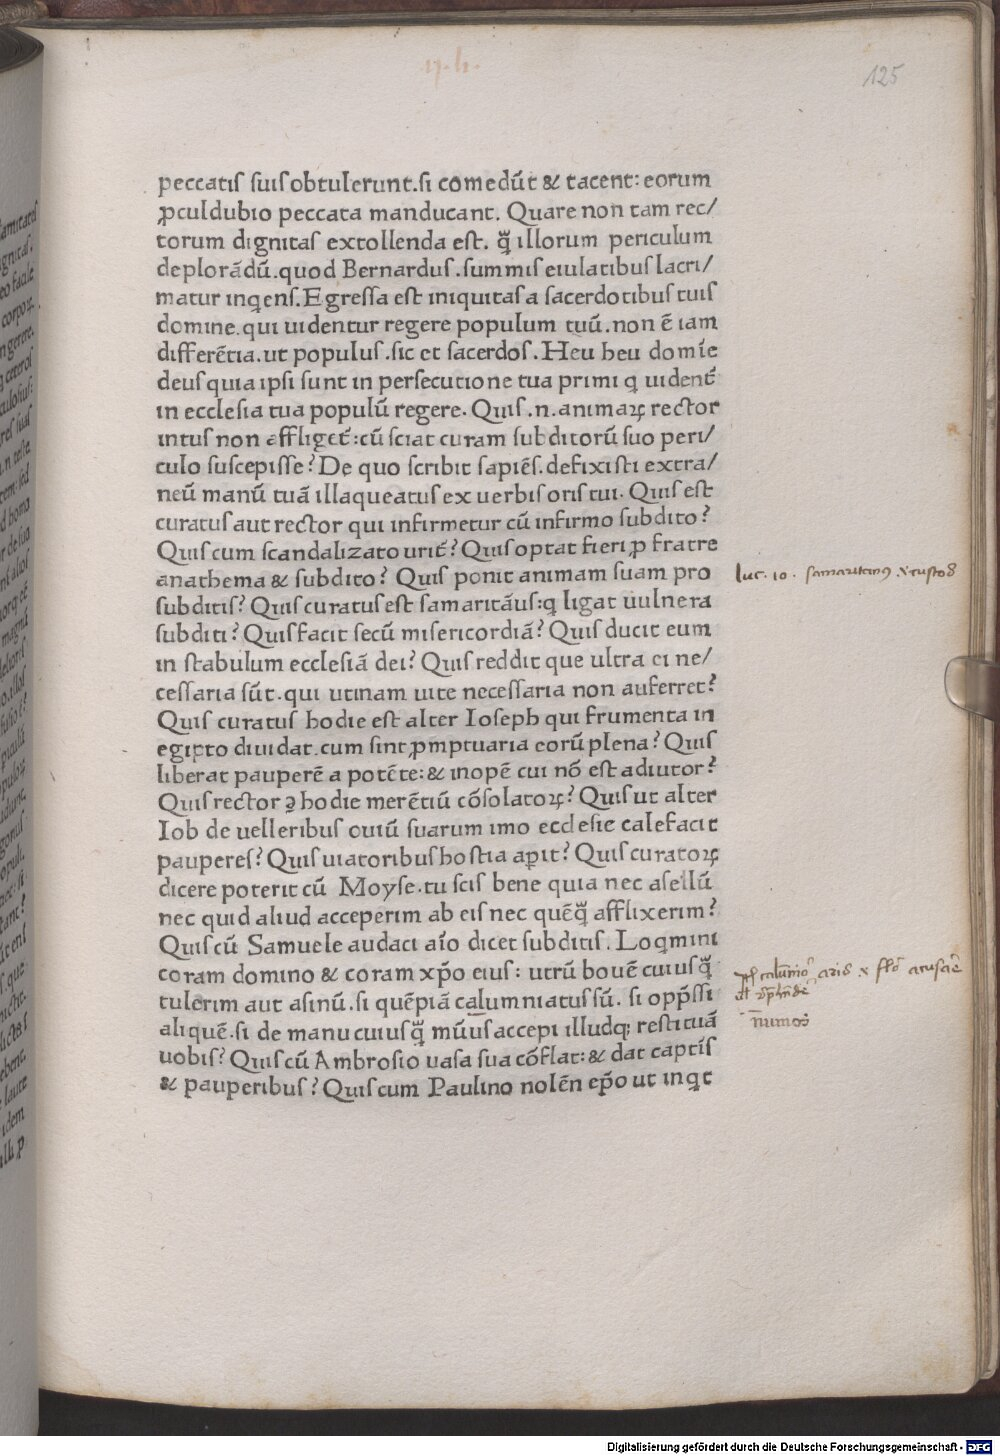 125
peccatiſ ſuiſ obtulerunt.ſi comedūt & tacent: eorum
ꝓculdubio peccata manducant. Quare non tam rec/
torum dignitaſ extollenda eſt. q̄̃ illorum periculum
deplorādū.quod Bernarduſ.ſummiſ eiulatibuſ lacri/
matur inqenſ.Egreſſa eſt iniquitaſ a ſacerdotibuſ tuiſ
domine.qui uidentur regere populum tuū.non ē iam
differētia.ut populuſ.ſic et ſacerdoſ.Heu heu domīe
deuſ quia ipſi ſunt in perſecutione tua primi q uident̄
in eccleſia tua populū regere. Quiſ.n.animaꝝ rector
intuſ non affliget̄:cū ſciat curam ſubditorū ſuo peri/
culo ſuſcepiſſe? De quo ſcribit ſapiēſ.defixiſti extra/
neū manū tuā illaqueatuſ ex uerbiſ oriſ tui. Quiſ eſt
curatuſ aut rector qui infirmetur cū infirmo ſubdito?
Quiſ cum ſcandalizato urit̄? Quiſ optat fieri ꝓ fratre
anathema & ſubdito? Quiſ ponit animam ſuam pro
ſubditiſ? Quiſ curatuſ eſt ſamaritāuſ:q ligat uulnera
ſubditi? Quiſ facit ſecū miſericordiā? Quiſ ducit eum
in ſtabulum eccleſiā dei? Quiſ reddit que ultra ei ne/
ceſſaria ſūt.qui utinam uite neceſſaria non auferret?
Quiſ curatuſ hodie eſt alter Ioſeph qui frumenta in
egipto diuidat.cum ſint ꝓmptuaria eorū plena? Quiſ
liberat pauperē a potēte:& inopē cui nō eſt adiutor?
Quiſ rector ꝫ hodie merētiū cōſolatoꝝ? Quiſ ut alter
Iob de uelleribuſ ouiū ſuarum imo eccleſie calefacit
pauperes? Quiſ uiatoribuſ hoſtia aꝑit? Quiſ curatoꝝ
dicere poterit cū Moyſe.tu ſcis bene quia nec aſellū
nec quid aliud acceperim ab eiſ nec quēq̄̃ afflixerim?
Quiſ cū Samuele audaci aīo dicet ſubditiſ. Loqmini
coram domino & coram xp̄o eiuſ: utrū bouē cuiuſq̄̃
tulerim aut aſinū.ſi quēpiā calumniatuſ ſū. ſi opp̄ſſi
aliquē.ſi de manu cuiuſq̄̃ mūuſ accepi illudqꝫ reſtituā
uobiſ? Quiſ cū Ambroſio uaſa ſua cōflat:& dat captiſ
& pauperibuſ? Quiſ cum Paulino nolēn ep̄o ut inqt
luc. 10. samaritanus
Digitalisierung gefördert durch die Deutsche Forschungsgemeinschaft - DFG